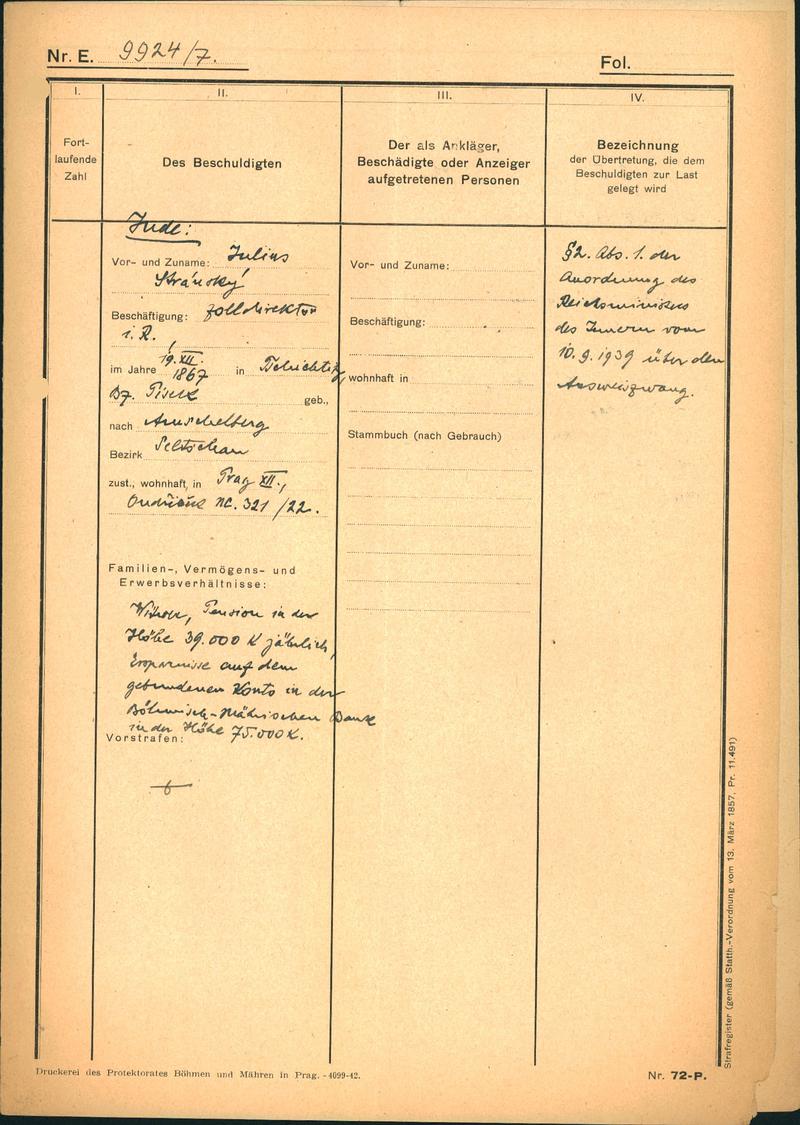 Nr. E. 9924/7.
Fol.
I.
Fort-
laufende
Zahl
II.
Des Beschuldigten
III.
Der als Ankläger,
Beschädigte oder Anzeiger
aufgetretenen Personen
IV.
Bezeichnung
der Übertretung, die dem
Beschuldigten zur Last
gelegt wird
Jude:
Vor- und Zuname: Julius
Stránský
Beschäftigung: Zolldirektor
i. R.
im Jahre 19. XII. 1867 in
Bz. Pisek geb.,
nach Amschelberg
Bezirk Seltschan
zust., wohnhaft, in Prag XII.,
Nc. 321/22.
Familien-, Vermögens- und
Erwerbsverhältnisse:
Witwer, Pension in der
Höhe 39.000 K jährlich,
Ersparnisse auf dem
gebundenen Konto in der
Böhmisch-Mährischen Bank
in der Höhe 75.000 K.
Vorstrafen:
Vor- und Zuname:
Beschäftigung:
wohnhaft in
Stammbuch (nach Gebrauch)
§ 2. Abs. 1. der
Anordnung des
Reichsministers
des Innern vom
10. 9. 1939 über den
Ausweiszwang.
Strafregister (gemäß Statth.-Verordnung vom 13. März 1857, Pr. 11.491)
Druckerei des Protektorates Böhmen und Mähren in Prag. - 4099-42.
Nr. 72-P.